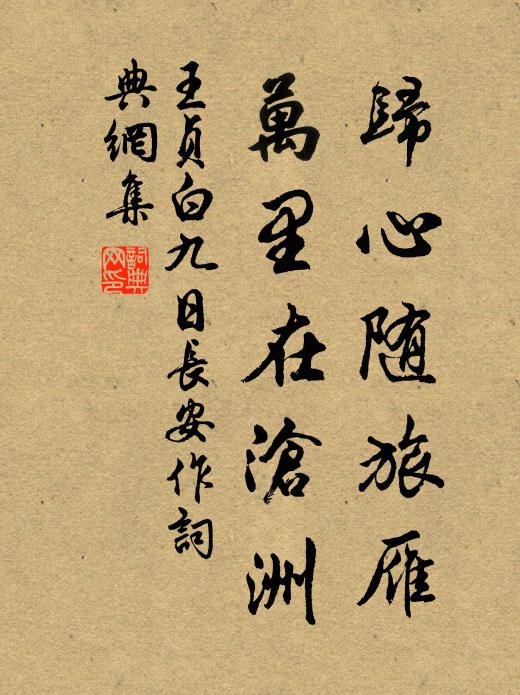 歸心随旅雁
萬里在滄洲
王貞白九日長安作詞
典網集
詞典
网印